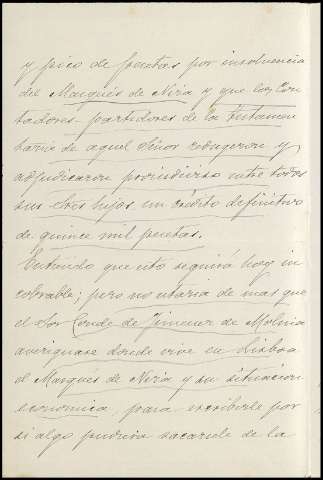 y pico de pesetas por insolvencia
del Marqués de Niza y que los Con
tadores partidores de la testamen
taría de aquel Señor redugeron y
adjudicaron proindiviso entre todos
sus tres hijos un crédito definitivo
de quince mil pesetas.
Entiendo que esto seguirá hoy in
cobrable; pero no estaria de mas que
el Sor Conde de Jimenez de Molina
averiguase donde vive en Lisboa
el Marqués de Niza y su situacion
economica, para escribirle por
si algo pudiera sacarsele de la